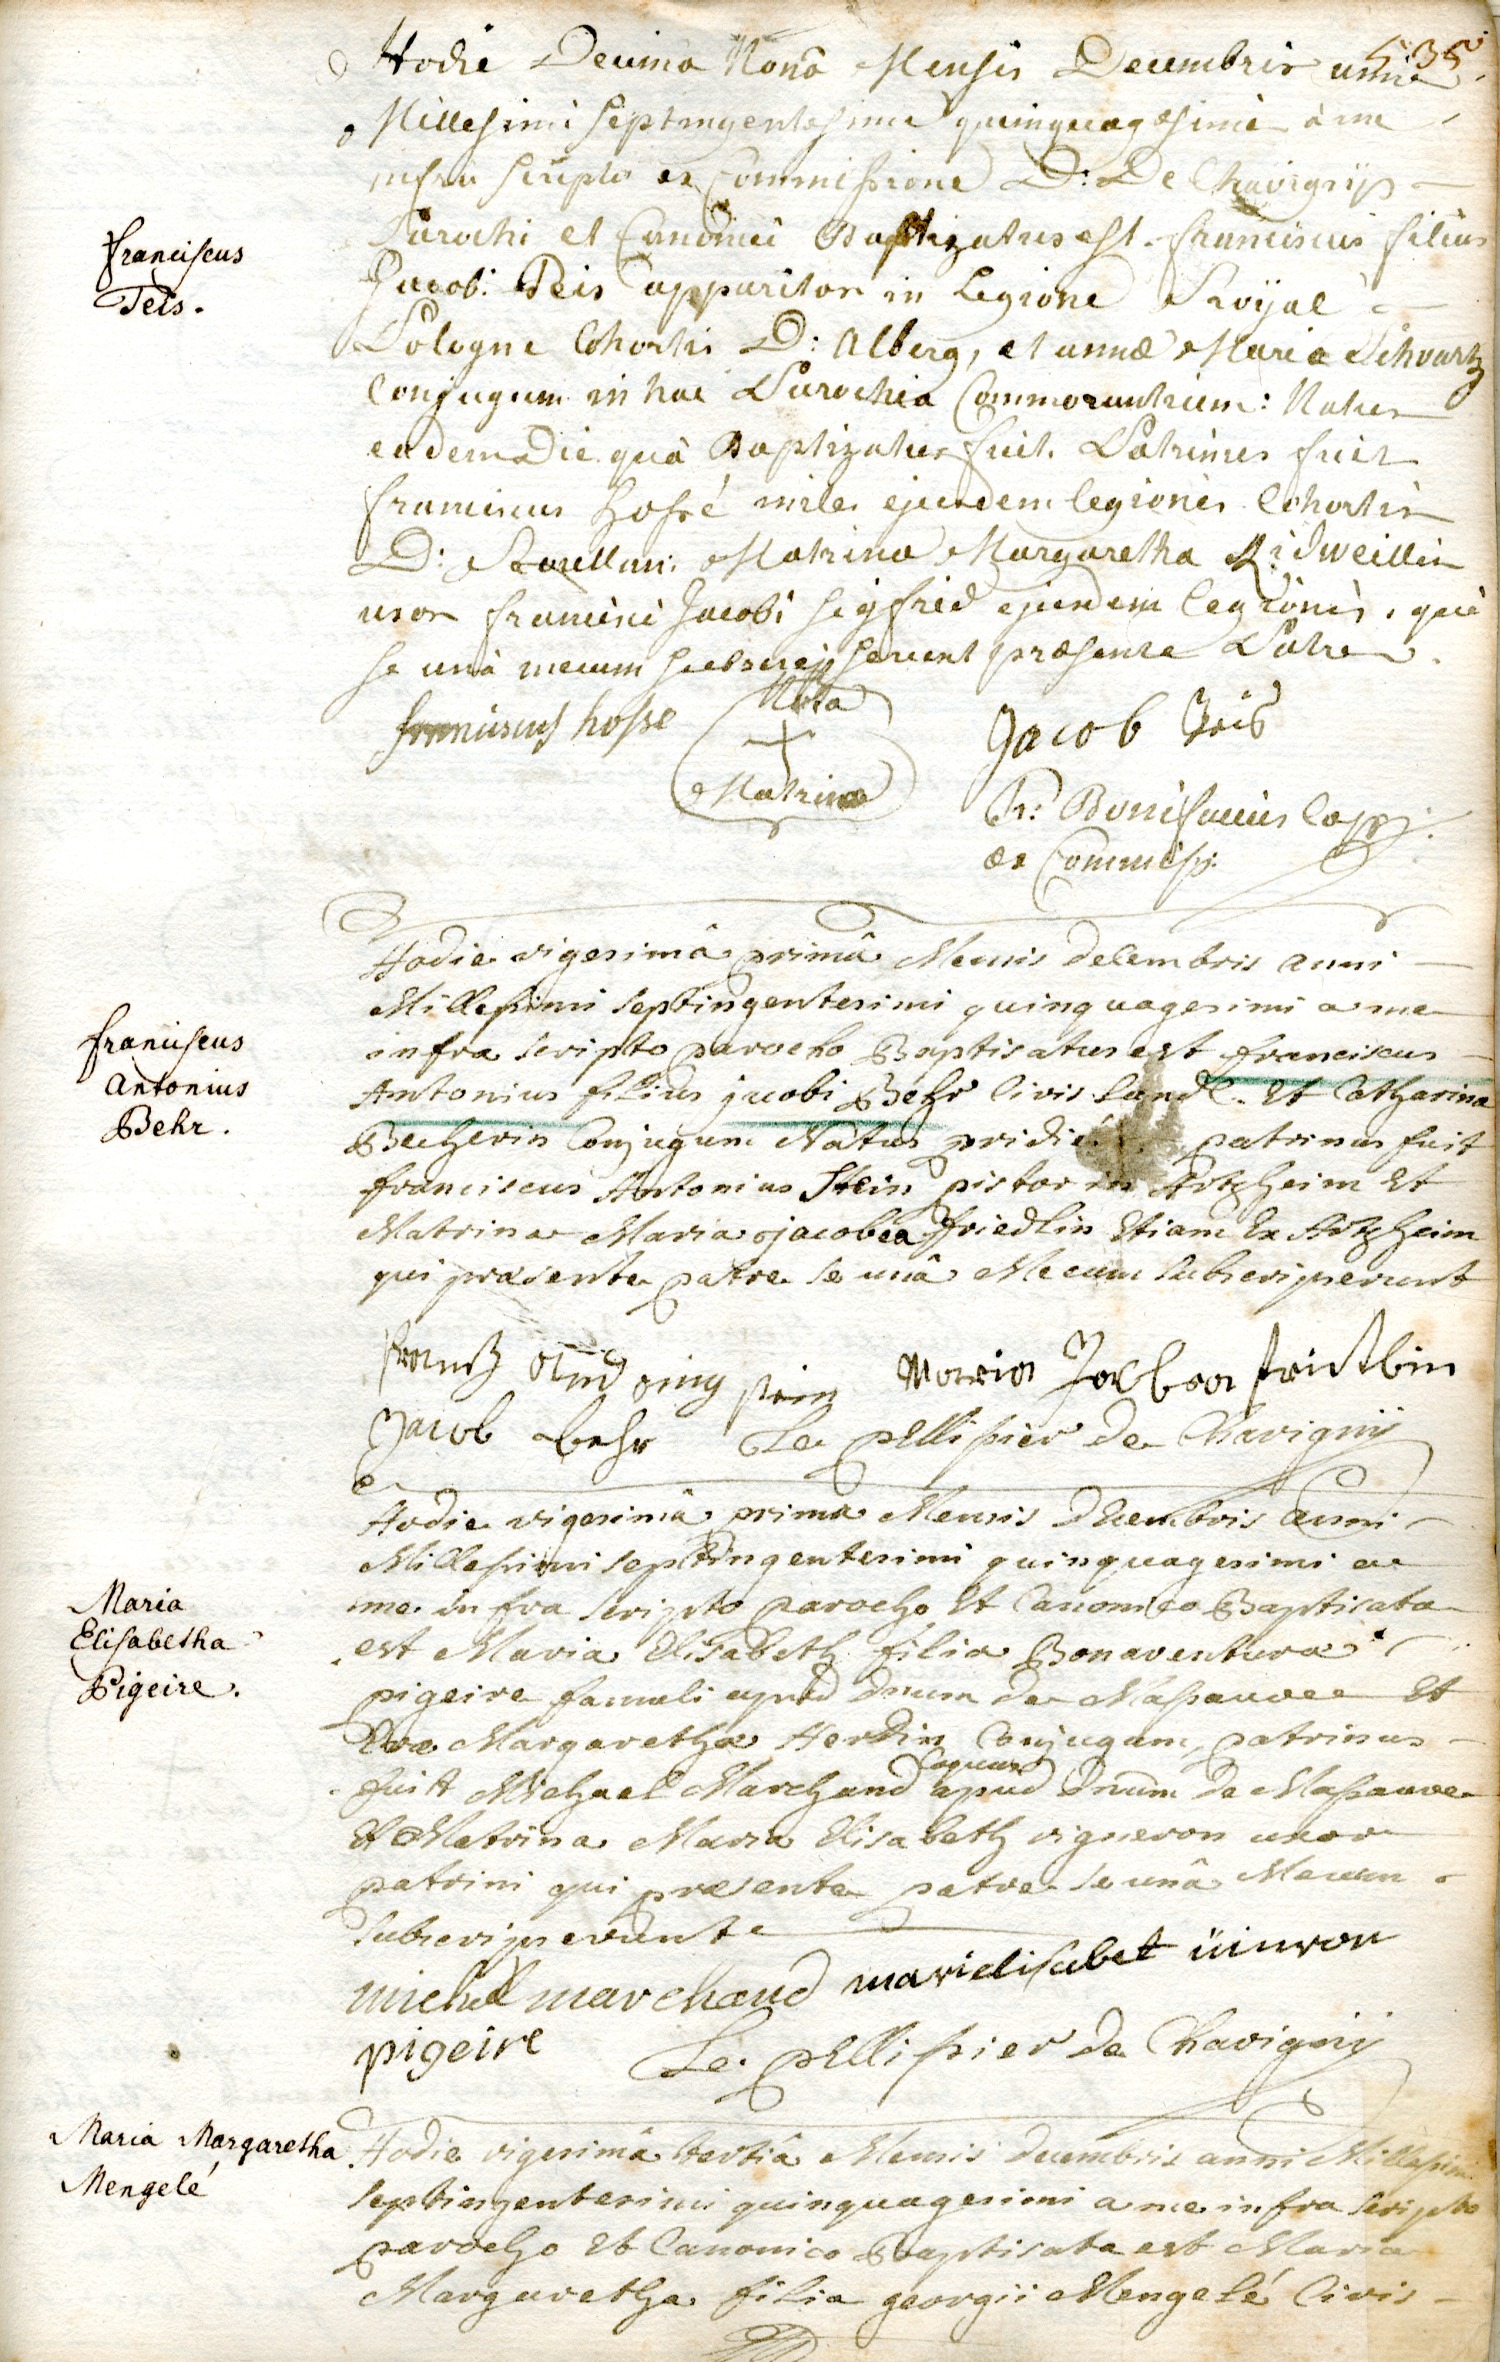 535
Hodie Decima Nonâ Mensis Decembris anni
Millesimi septingentesimi quinquagesimi à me
infra scripto ex Commissione D: De Chavignÿ
Parochi et Canonici Baptizatus est franciscus filius
franciscus
Teis.
Jacobi Teis apparitor in Legione Royal
Pologne Cohortis D: Alberg, et annæ Maria Schvartz
Conjugum in hac Parochia Commorantium: Natus
eadem Die quâ Baptizatus fuit. Patrinus fuit
franciscus Hossé miles ejusdem legionis Cohortis
D: Matrina Margaretha
uxor francisci Jacobi sigfrid ejusdem legionis, qui
se unà mecum subscripserunt præsente Patre.
franciscus hosse
Nota
+
Matrina
Jacob Teis
Fr: Bonifacius Capp:
ex Commiss:
Hodie vigesimâ primâ Mensis decembris anni
Millesimi septingentesimi quinquagesimi a me
infra scripto parocho Baptisatus est franciscus
franciscus
Antonius
Behr.
Antonius filius jacobi Behr Civis Land. Et Catharina
Becherin Conjugum Natus pridié patrinus fuit
franciscus Antonius Stein pistor in Artzheim Et
Matrina Maria jacobea friedlin Etiam Ex Artzheim
qui præsente patre se unâ Mecum subscripserunt
frantz stein Maria Jacobea fridtlin
Jacob behr Le pellissier de Chavignÿ
Hodie vigesimâ prima Mensis decembris Anni
Millesimi septingentesimi quinquagesimi a
me infra scripto parocho Et Canonico Baptisata
Maria
Elisabetha
Pigeire.
est Maria Elisabeth filia Bonaventura
pigeire famuli apud dnum de Massauve Et
Eva Margaretha Herdin Conjugum, patrinus
Coquus
fuit Michael Marchand apud dnum de Massauve
Et Matrina Maria Elisabeth vigneron uxor
patrini qui præsente patre se unâ Mecum
subscripserunt
michel marchand marielisabet üinron
pigeire Le pellissier de Chavignÿ
Maria Margaretha
Mengelé
Hodie vigesimâ tertiâ Mensis decembris anni Millesimi
septingentesimi quinquagesimi a me infra scripto
parocho Et Canonico Baptisata est Maria
Margaretha filia georgii Mengelé Civis